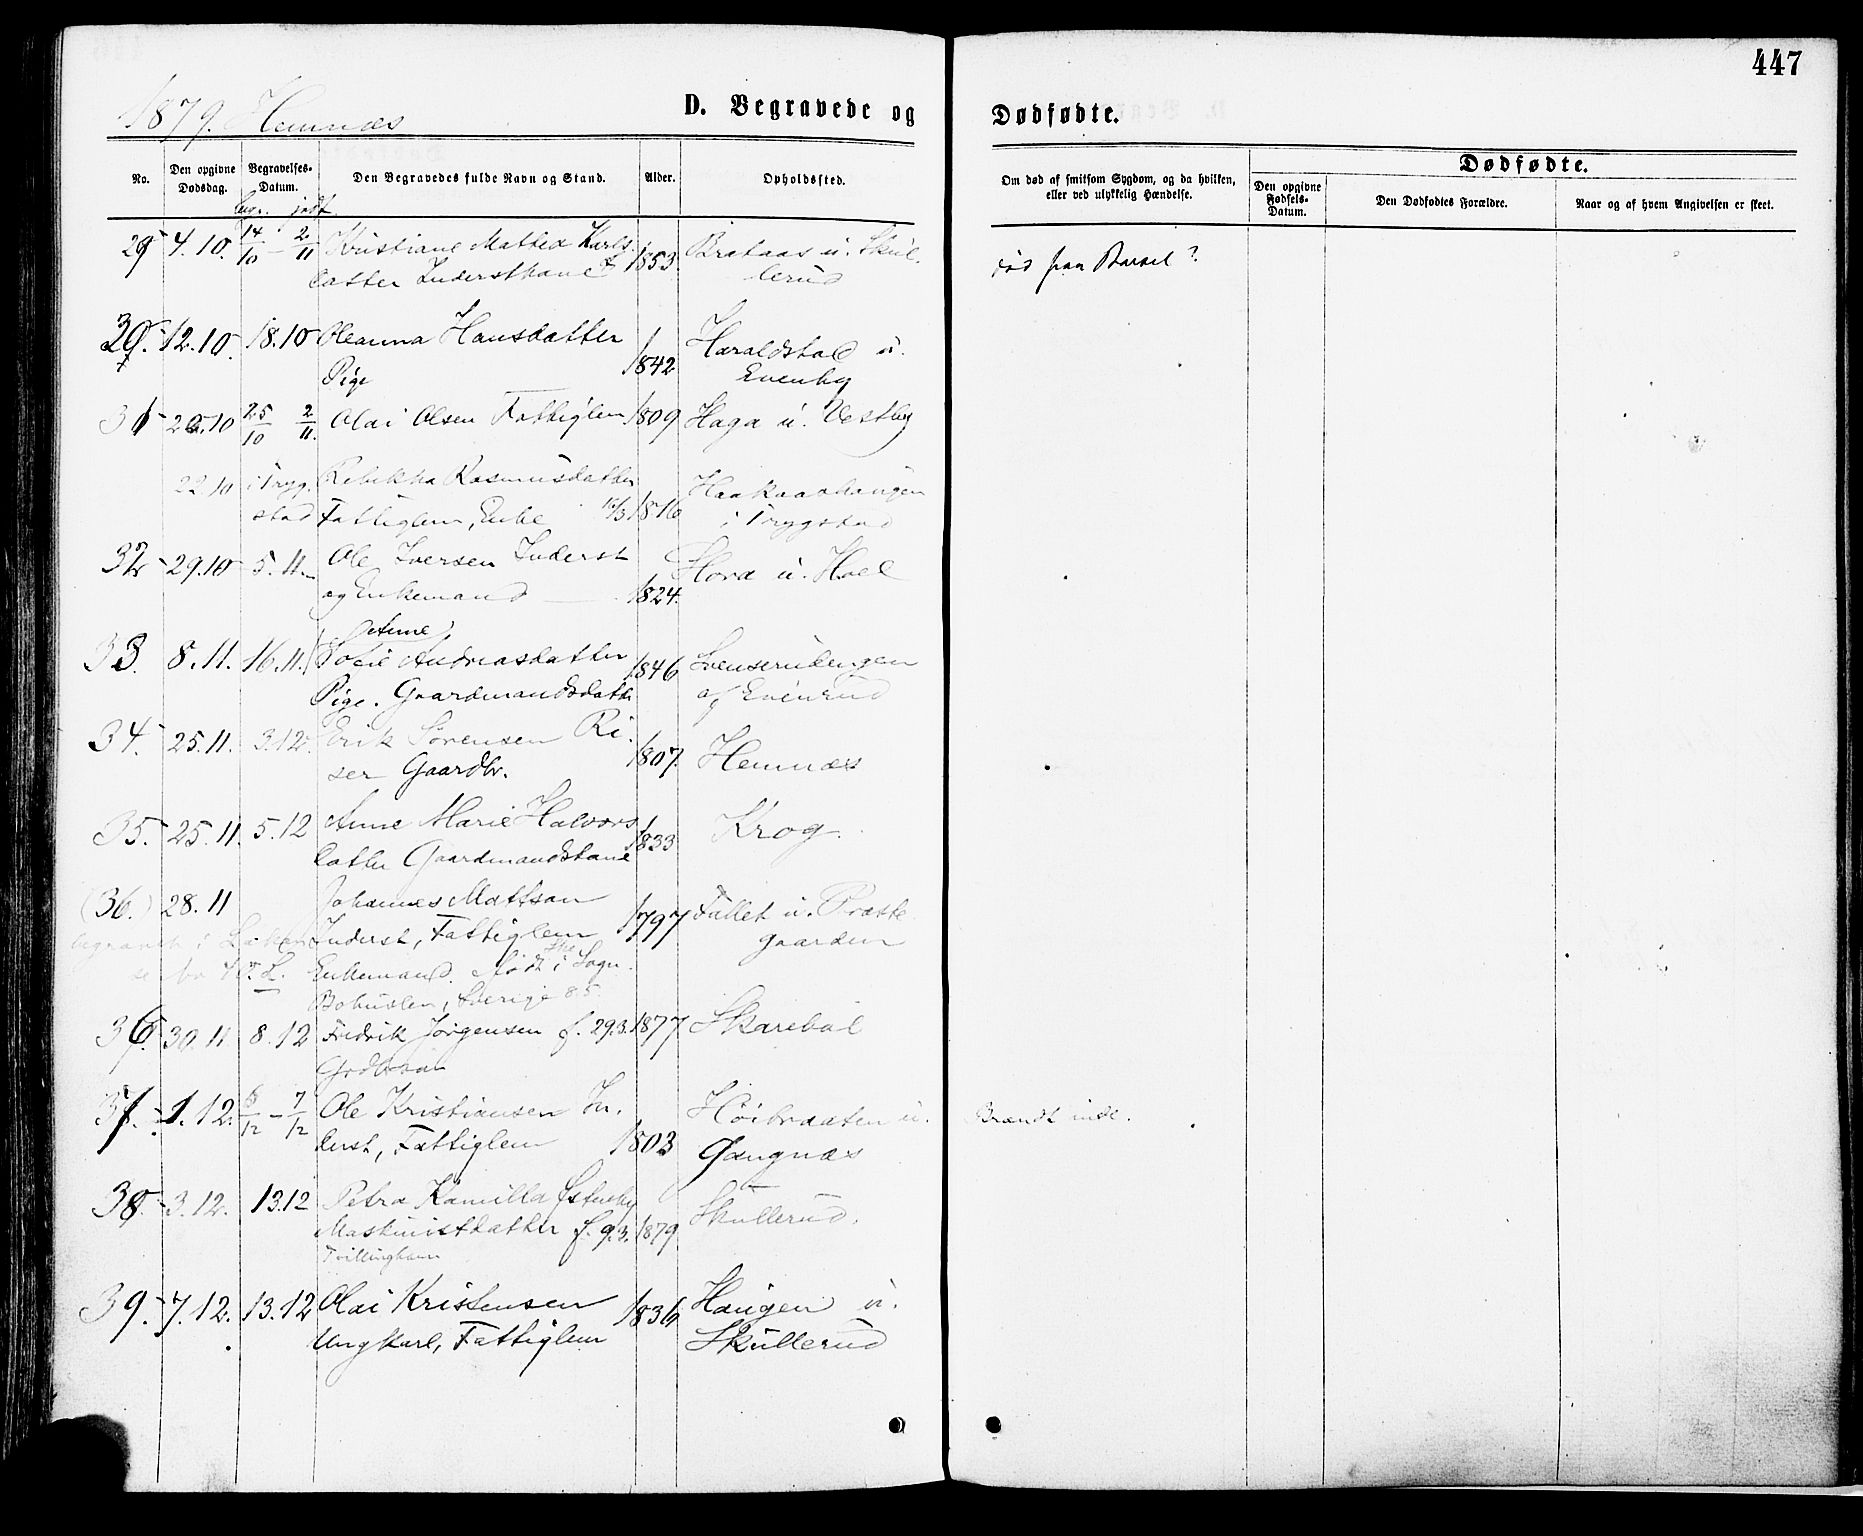 447
1879. Hemnæs
D. Begravede og Dødfødte.
No. Den opgivne Dødsdag. Begravelses-Datum. Den Begravedes fulde Navn og Stand. Alder. Opholdssted.
Om død af smitsom Sygdom, og da hvilken, eller ved ulykkelig Hændelse.
Dødfødte.
Den opgivne Fødsels-Datum. Den Dødfødtes Forældre. Naar og af hvem Angivelsen er skeet.
begr. jordf.
29 4.10. 14/10 – 2/11 Kristiane Mathea Karls- 1853. Brataas u. Skul-
datter Inderstkone lerud
død paa Barsel?
30. 12.10. 18.10 Oleanna Hansdatter
Pige 1842 Haraldstad u. Evenby
31 20.10 25/10 2/11. Olai Olsen Fattiglem 1809 Haga u. Vestby
22.10 i Tryg- Rebekka Rasmusdatter Haakaashaugen
stad Fattiglem, Enke 1816 i Trygstad
32 29.10 5.11. Ole Iversen Inderst Hora u. Hoel
og Enkemand 1824.
Anne
33. 8.11. 16.11. Sofie Andreasdatter 1846 Svenserudengen
Pige. Gaardmandsdatter af Evenrud
34. 25.11. 3.12. Erik Sørensen Ri-
ser Gaardbr. 1807. Hemnæs
35. 25.11. 5.12 Anne Marie Halvors- 1833 Krog.
datter Gaardmandskone
(36.) 28.11 Johannes Mattson 1797 Fallet u. Præste-
begravet i Inderst, Fattiglem gaarden
Enkemand. Født i Sogn.
Bohuslen, Sverige 8.5.
36. 30.11 8.12 Fredrik Jørgensen f. 29.3. 1877. Skarebøl
Grdbrsøn
37. 1.12. 5/12 – 7/12 Ole Kristiansen In- Høibraaten u.
derst, Fattiglem 1803 Gangnæs
Brændt inde.
38. 3.12. 13.12 Petra Kamilla Østenby Skullerud.
Maskinistdatter f. 9.3. 1879
Tvillingbarn
39. 7.12. 13.12 Olai Kristensen 1836 Haugen u.
Ungkarl, Fattiglem Skullerud